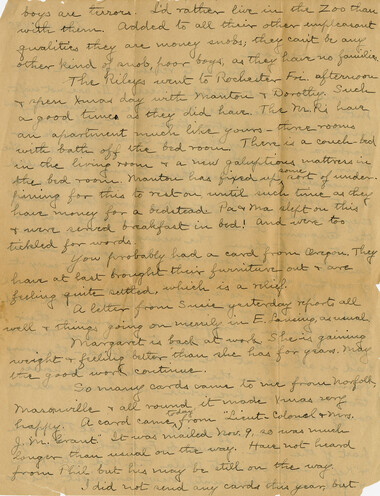 boys are terors. I'd rather live in the Zoo than
with them. Added to all their other unpleasant
qualities they are money snobs; they can't be any
other kind of snob, poor boys, as they have no families.
The Rileys went to Rochester Fri. afternoon
& spent Xmas day with Manton & Dorothy. Such
a good time as they did have. The M. Rs have
an apartment much like yours - three rooms
with bath off the bed room. There is a couch-bed
in the living room & a new galuptious mattress in
the bed room. Manton has fixed up some sort of under-
pinning for this to rest on until such time as they
have money for a bedstead. Pa & Ma slept on this
& were served breakfast in bed! And were too
tickled for words.
You probably had a card from Oregon. They
have at last brought their furniture out & are
feeling quite settled, which is a relief.
A letter from Susie yesterday reports all
well & things going on merrily in E. Lansing, as usual.
Margaret is back at work. She is gaining
weight & feeling better than she has for years. May
the good work continue.
So many cards came to me from Norfolk,
& all round it made Xmas very
happy. A card came today from "Lieut. Colonel & Mrs.
J. M. Grant." It was mailed Nov. 9, so was much
longer than usual on the way. Have not heard
from Phil but his may be still on the way.
I did not send any cards this year, but